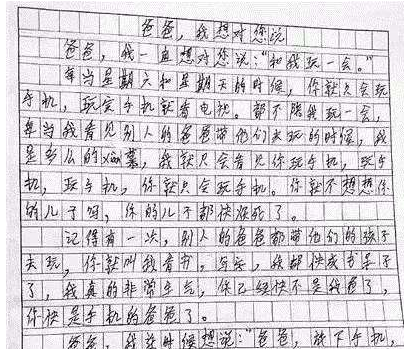 爸爸,我想对您说
爸爸,我一直想对您说:“和我玩一会。”
每当星期六和星期天的时候,你就只会玩
手机,玩完手机就看电视。都不陪我玩一会,
每当我看见别人的爸爸带他们去玩的时候,我
是多么的xiàn慕,我就只会看见你玩手机,玩手
机,玩手机,你就只会玩手机。你就不想想你
的儿子吗,你的儿子都快烦死了。
记得有一次,别人的爸爸都带他们的孩子
去玩,你就叫我看书,写字,我都快成书呆子
了,我真的非常生气,你已经快不是我爸了,
你快是手机的爸爸了。
爸爸,我这时候想说:“爸爸,放下手机,